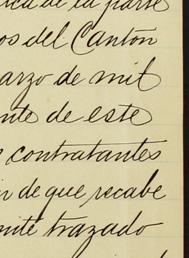 ica de la parte
os del Cantón
arzo de mil
nte de este
contratantes
n de que recabe
mite trazado